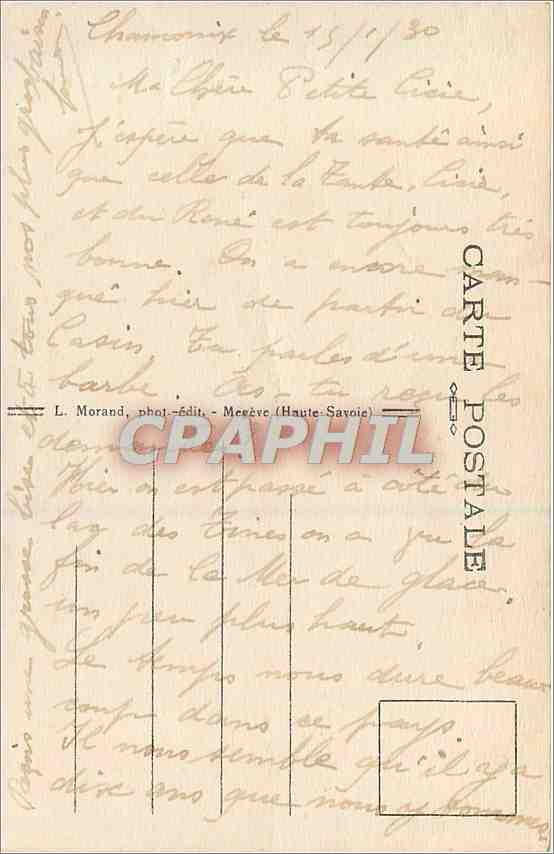 Chamonix le 15/1/30
Ma Chère Petite Cicie,
J'espère que ta santé ainsi
que celle de la Tante, Cicie,
et du René est toujours très
bonne. On a encore man-
qué hier de partir du
Casin. Tu parles d'une
barbe. As-tu reçu les
L. Morand, phot.-édit. - Megève (Haute-Savoie)
CPAPHIL
CARTE POSTALE
Hier on est passé à côté du
lac des Tines on a vu la
fin de la Mer de glace.
un peu plus haut
Le temps nous dure beau
coup dans ce pays
Il nous semble qu'il y a
dix ans que nous y sommes
Reçois une grosse bise de tous, nos plus